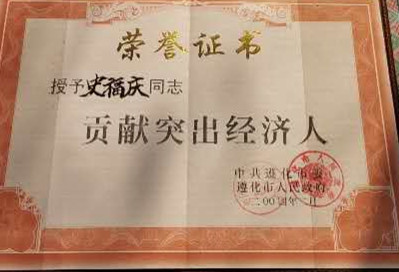 荣誉证书
授予史福庆同志
贡献突出经济人
中共遵化市委
遵化市人民政府
二00四年二月